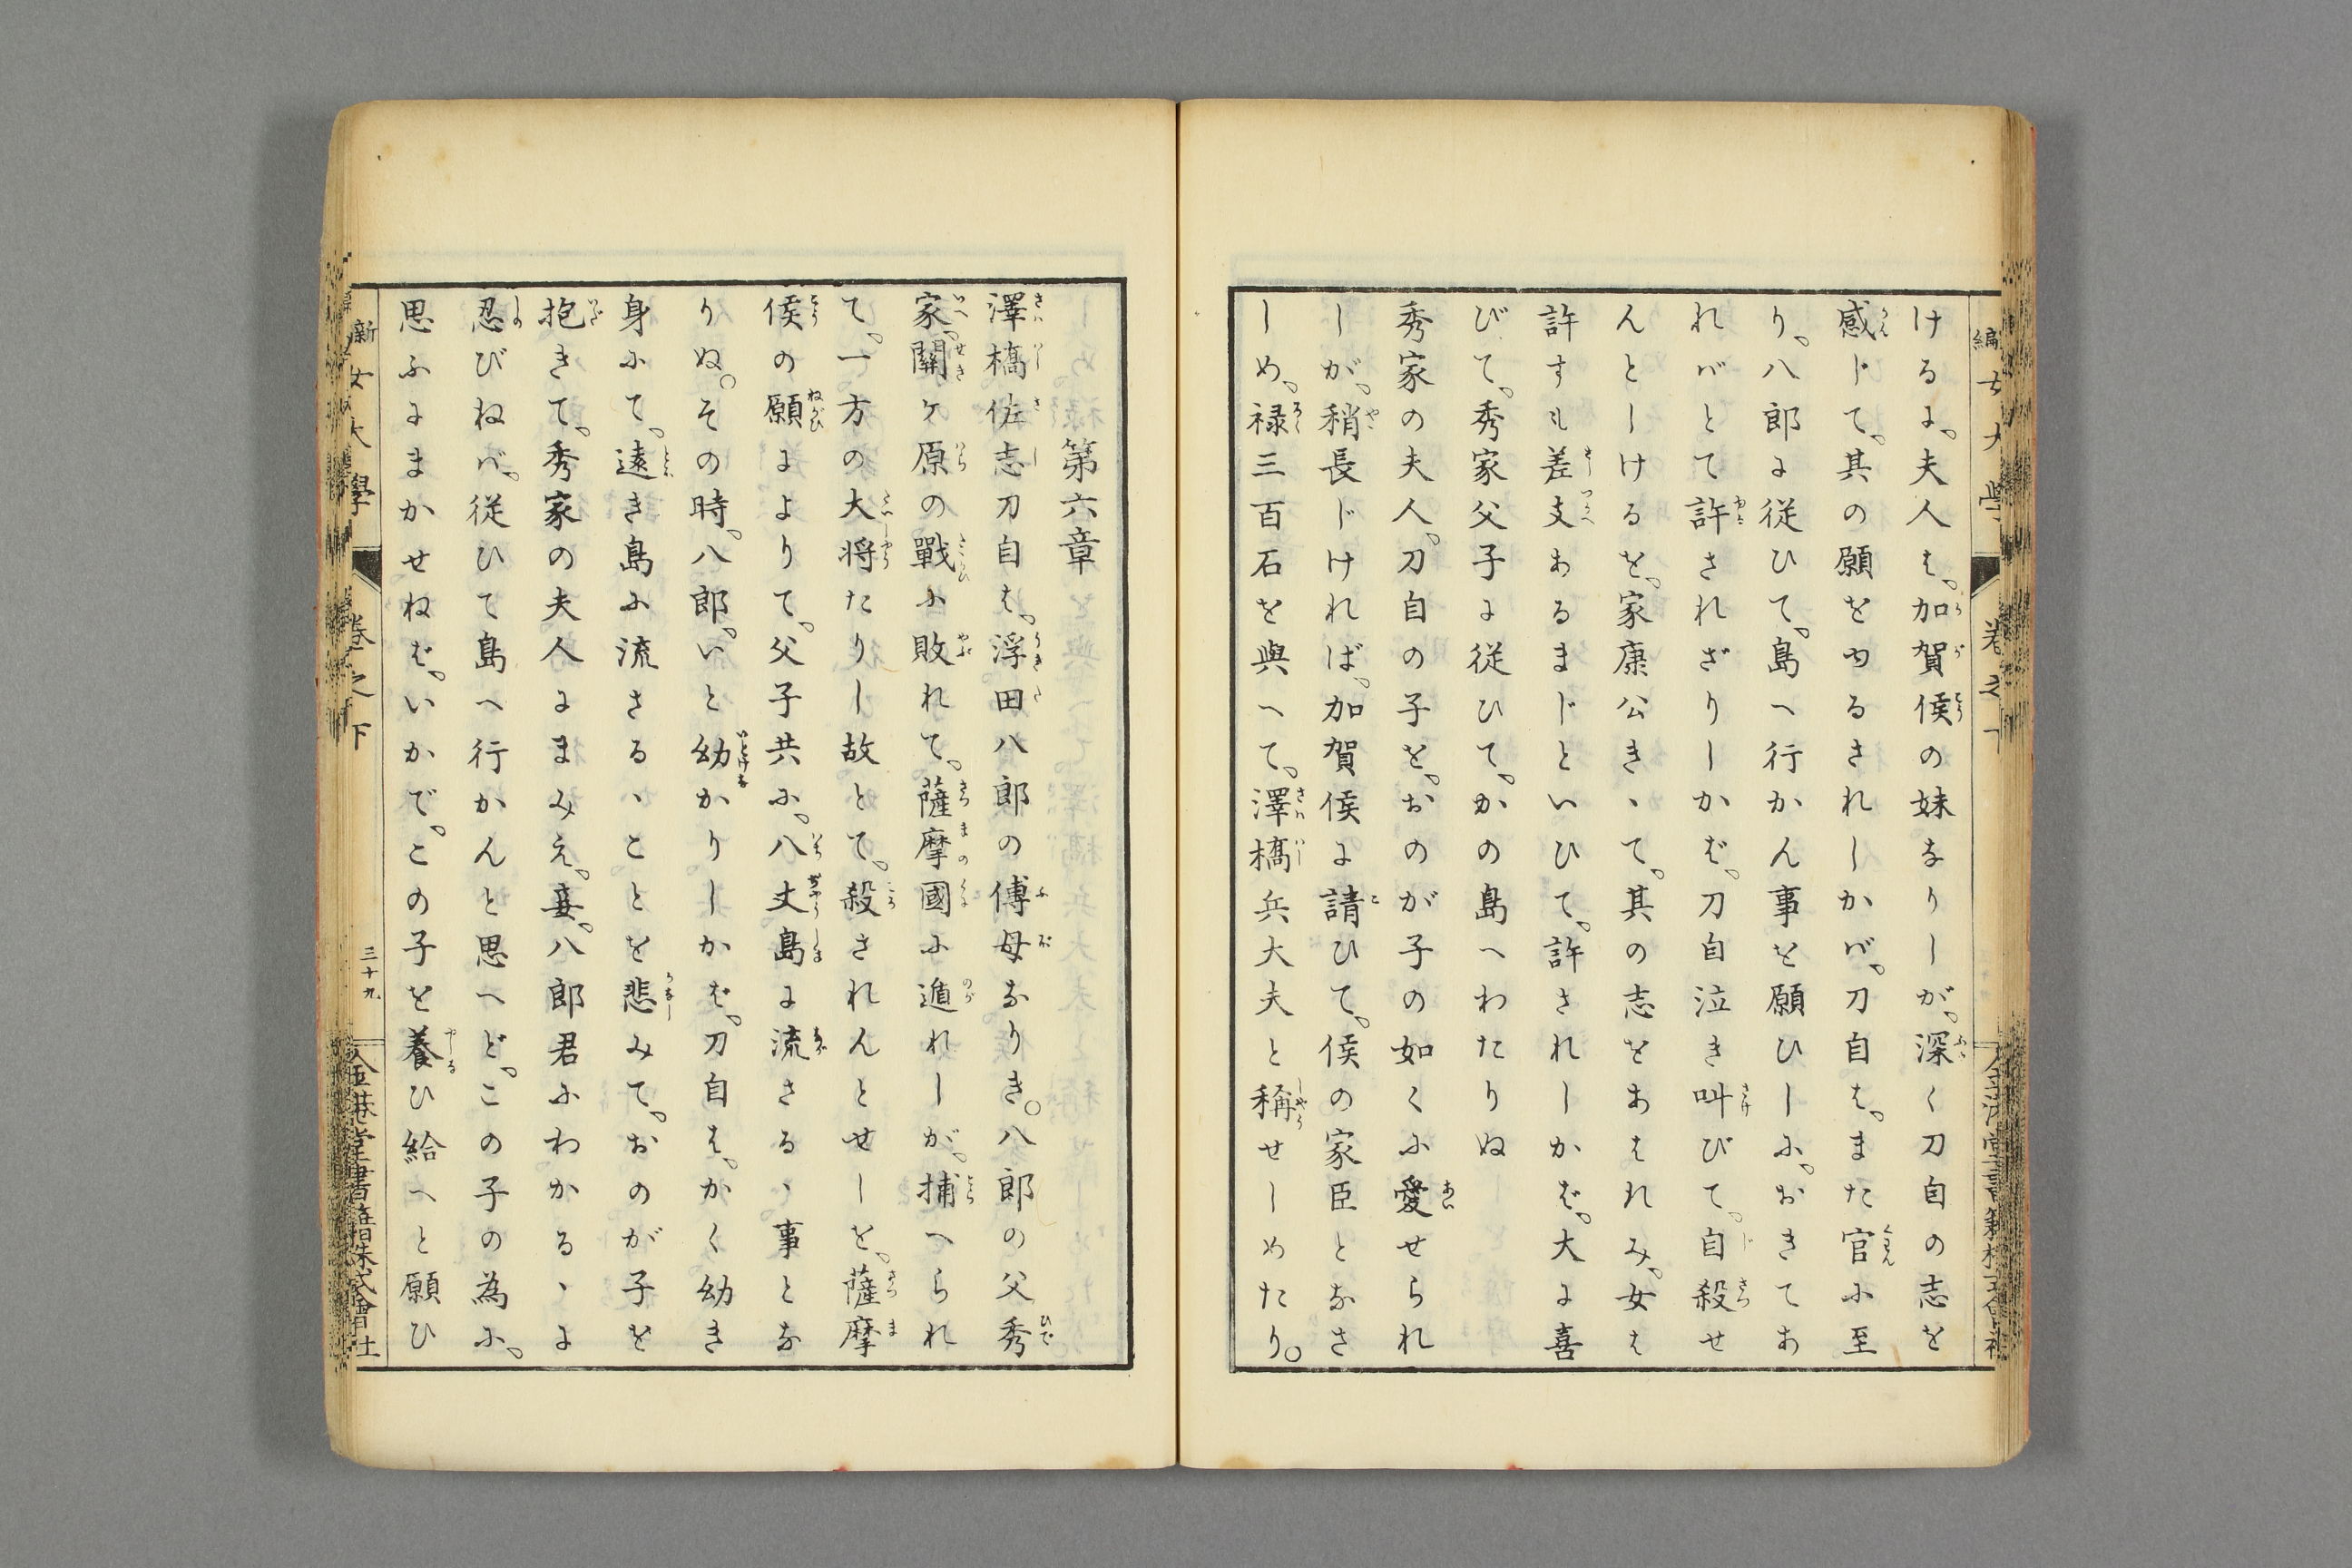 けるに、夫人は、加賀侯の妹なりしが、深く刀自の志を
感じて、其の願をゆるされしかバ、刀自は、また官に至
り、八郎に従ひて、島へ行かん事を願ひしに、おきてあ
れバとて許されざりしかば、刀自泣き叫びて、自殺せ
んとしけるを、家康公きゝて、其の志をあはれみ、女は
許すも差支あるまじといひて、許されしかば、大に喜
びて、秀家父子に従ひて、かの島へわたりぬ
秀家の夫人、刀自の子を、おのが子の如くに愛せられ
しが、稍長じければ、加賀侯に請ひて、侯の家臣となさ
しめ、禄三百石を與へて、澤橋兵大夫と稱せしめたり。
第六章
澤橋佐志刀自は、浮田八郎の傅母なりき。八郎の父秀
家、關ヶ原の戰に敗れて、薩摩國に遁れしが、捕へられ
て、一方の大将たりし故とて、殺されんとせしを、薩摩
侯の願によりて、父子共に、八丈島に流さるゝ事とな
りぬ。その時、八郎、いと幼かりしかば、刀自は、かく幼き
身にて、遠き島に流さるゝことを悲みて、おのが子を
抱きて、秀家の夫人にまみえ、妾、八郎君にわかるゝに
忍びねバ、従ひて島へ行かんと思へど、この子の為に、
思ふにまかせねば、いかで、この子を養ひ給へと願ひ
新編女大學 卷之下 三十九 金港堂書籍株式會社